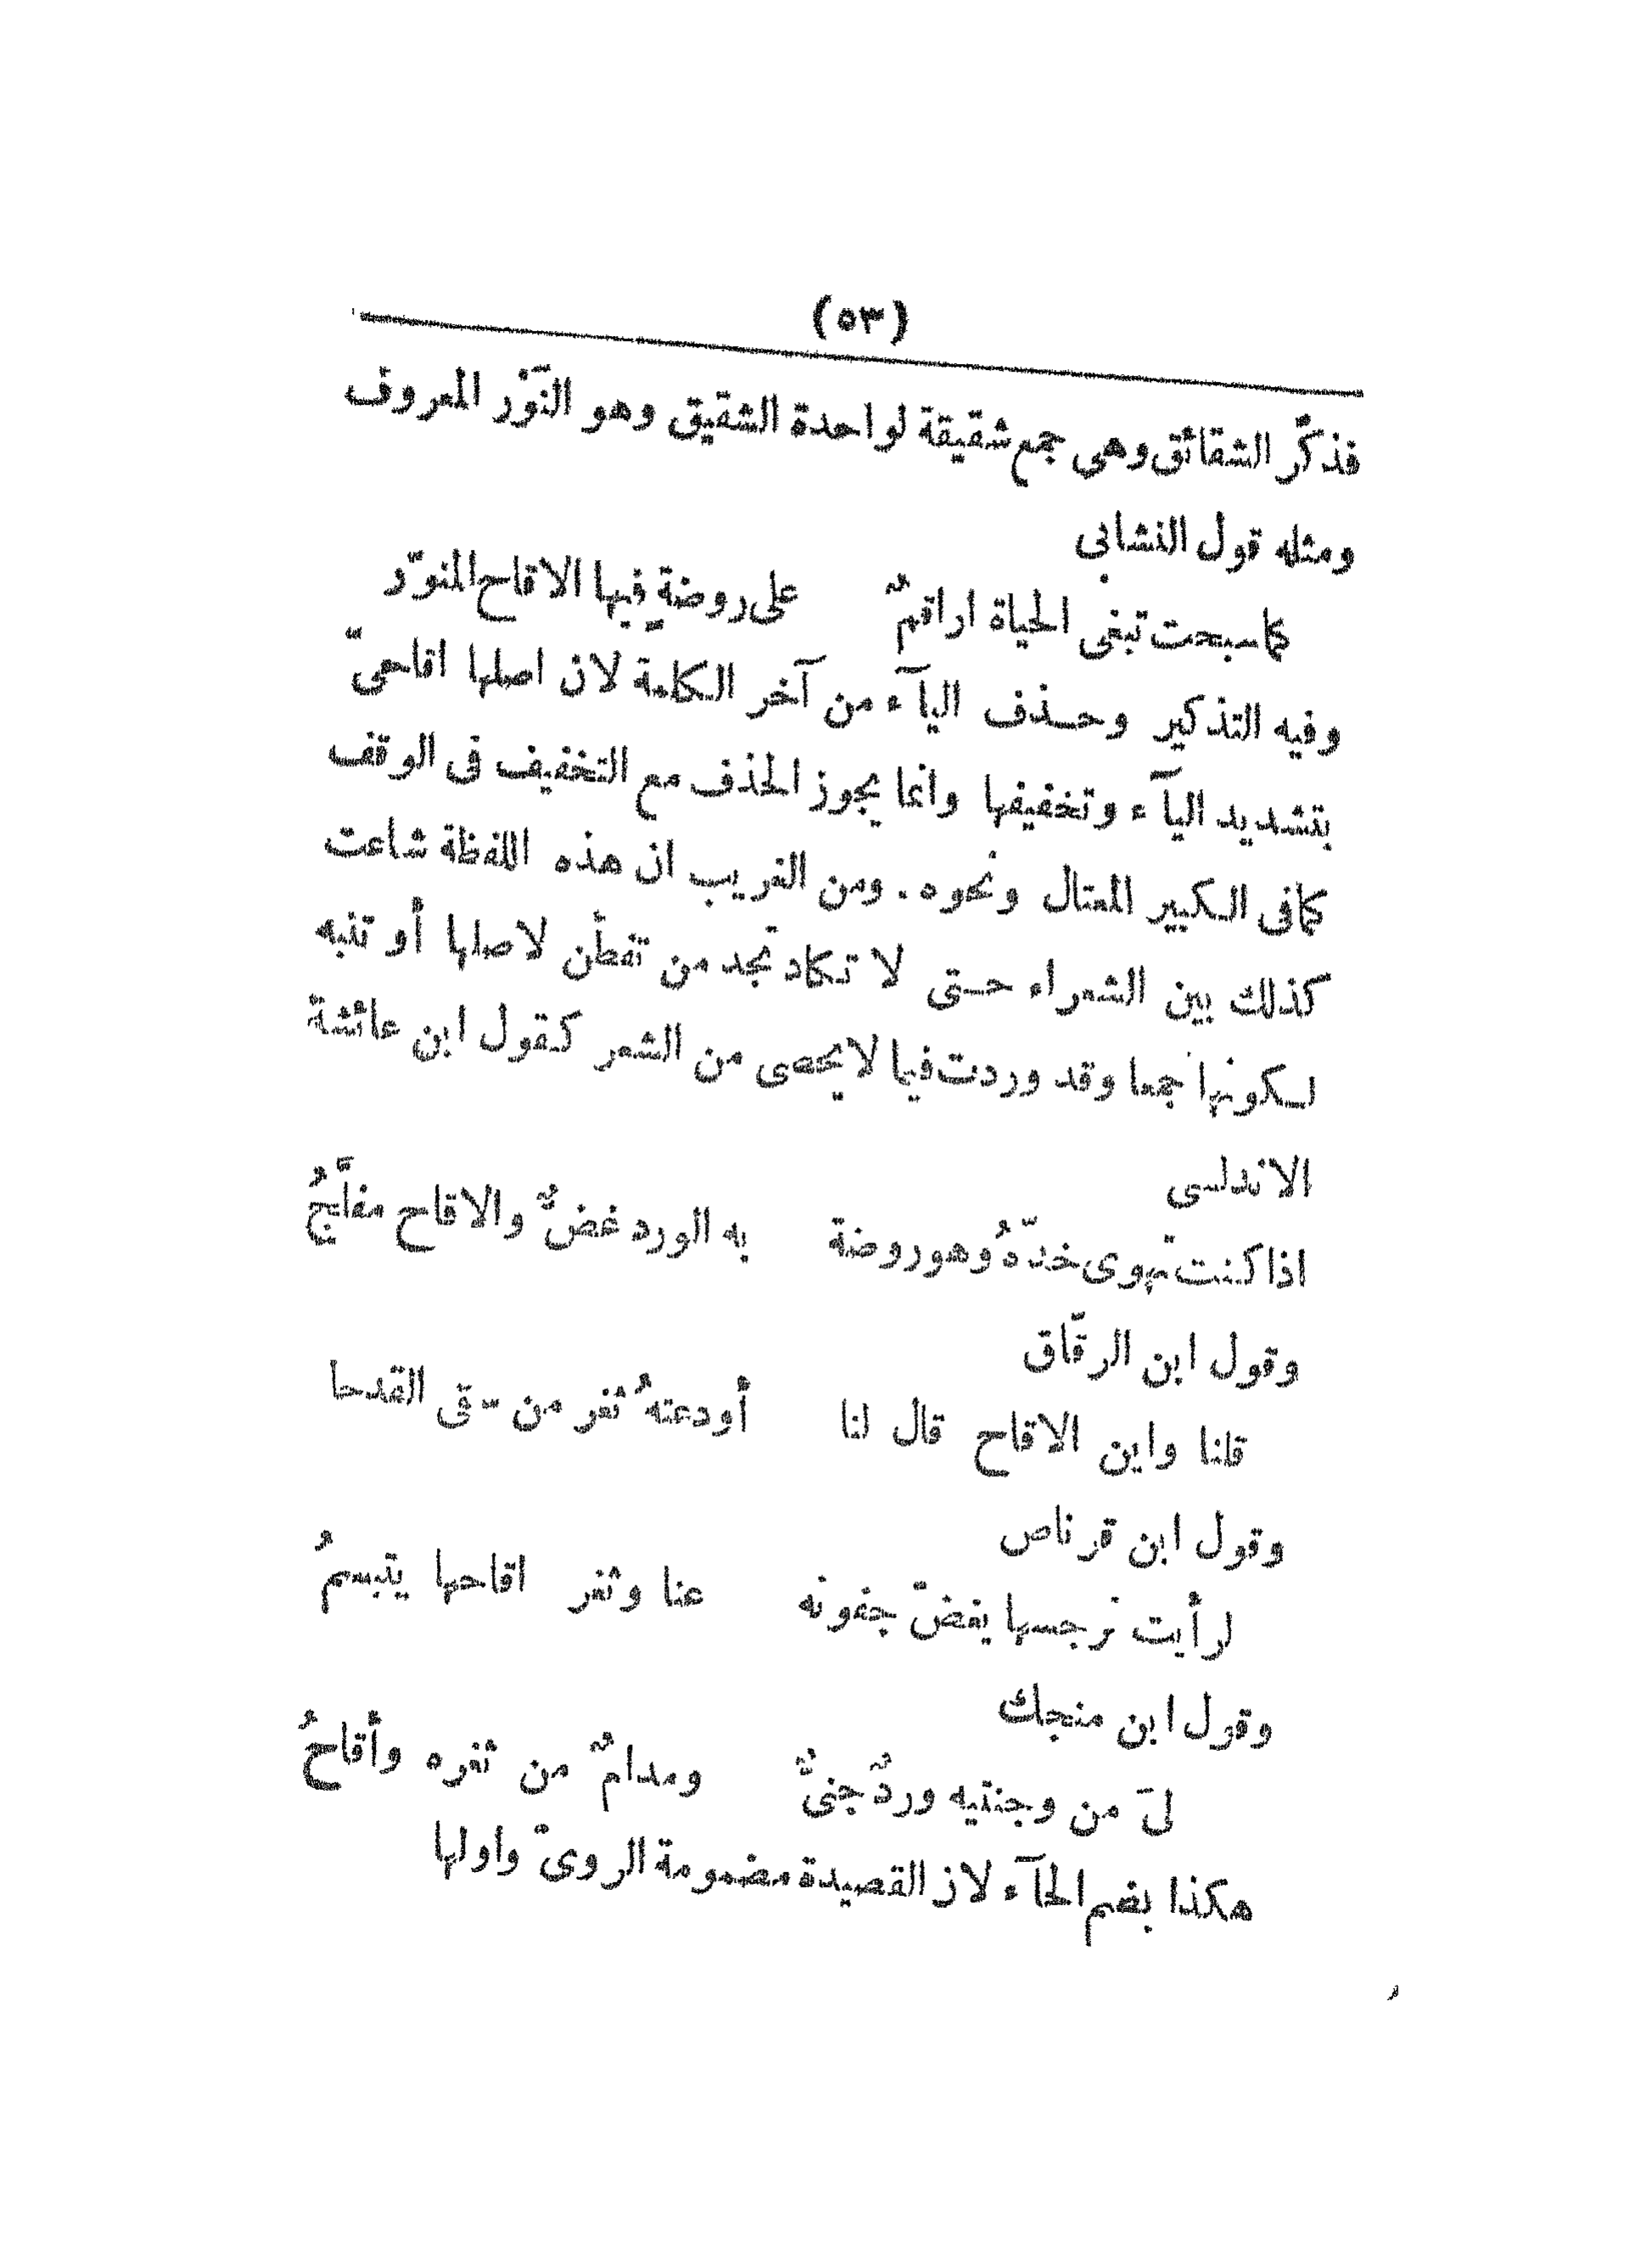 (٥٣)
فذكّر الشقائق وهي جمع شقيقة لواحدة الشقيق وهو النَوْر المعروف
ومثله قول النشابي
كما سبحت تبغي الحياة اراقمٌ على روضةٍ فيها الاقاح المنوّر
وفيه التذكير وحذف اليآء من آخر الكلمة لان اصلها اقاحيّ
بتشديد اليآء وتخفيفها وانما يجوز الحذف مع التخفيف في الوقف
كما في الكبير المتعال ونحوه . ومن الغريب ان هذه اللفظة شاعت
كذلك بين الشعراء حتى لا تكاد تجد من تفطّن لاصلها أو تنبه
لكونها جمعا وقد وردت فيما لا يحصى من الشعر كقول ابن عائشة
الاندلسي
اذا كنت تهوى خدّهُ وهو روضة به الورد غضٌ والاقاح مفلَّجُ
وقول ابن الرقّاق
قلنا واين الاقاح قال لنا أودعتهُ ثغر من سقى القدحا
وقول ابن قرناص
لرأيت نرجسها يغضّ جفونه عنا وثغر اقاحها يتبسمُ
وقول ابن منجك
ليَ من وجنتيه وردٌ جنيٌّ ومدامٌ من ثغره وأقاحُ
هكذا بضم الحآء لان القصيدة مضمومة الرويّ واولها